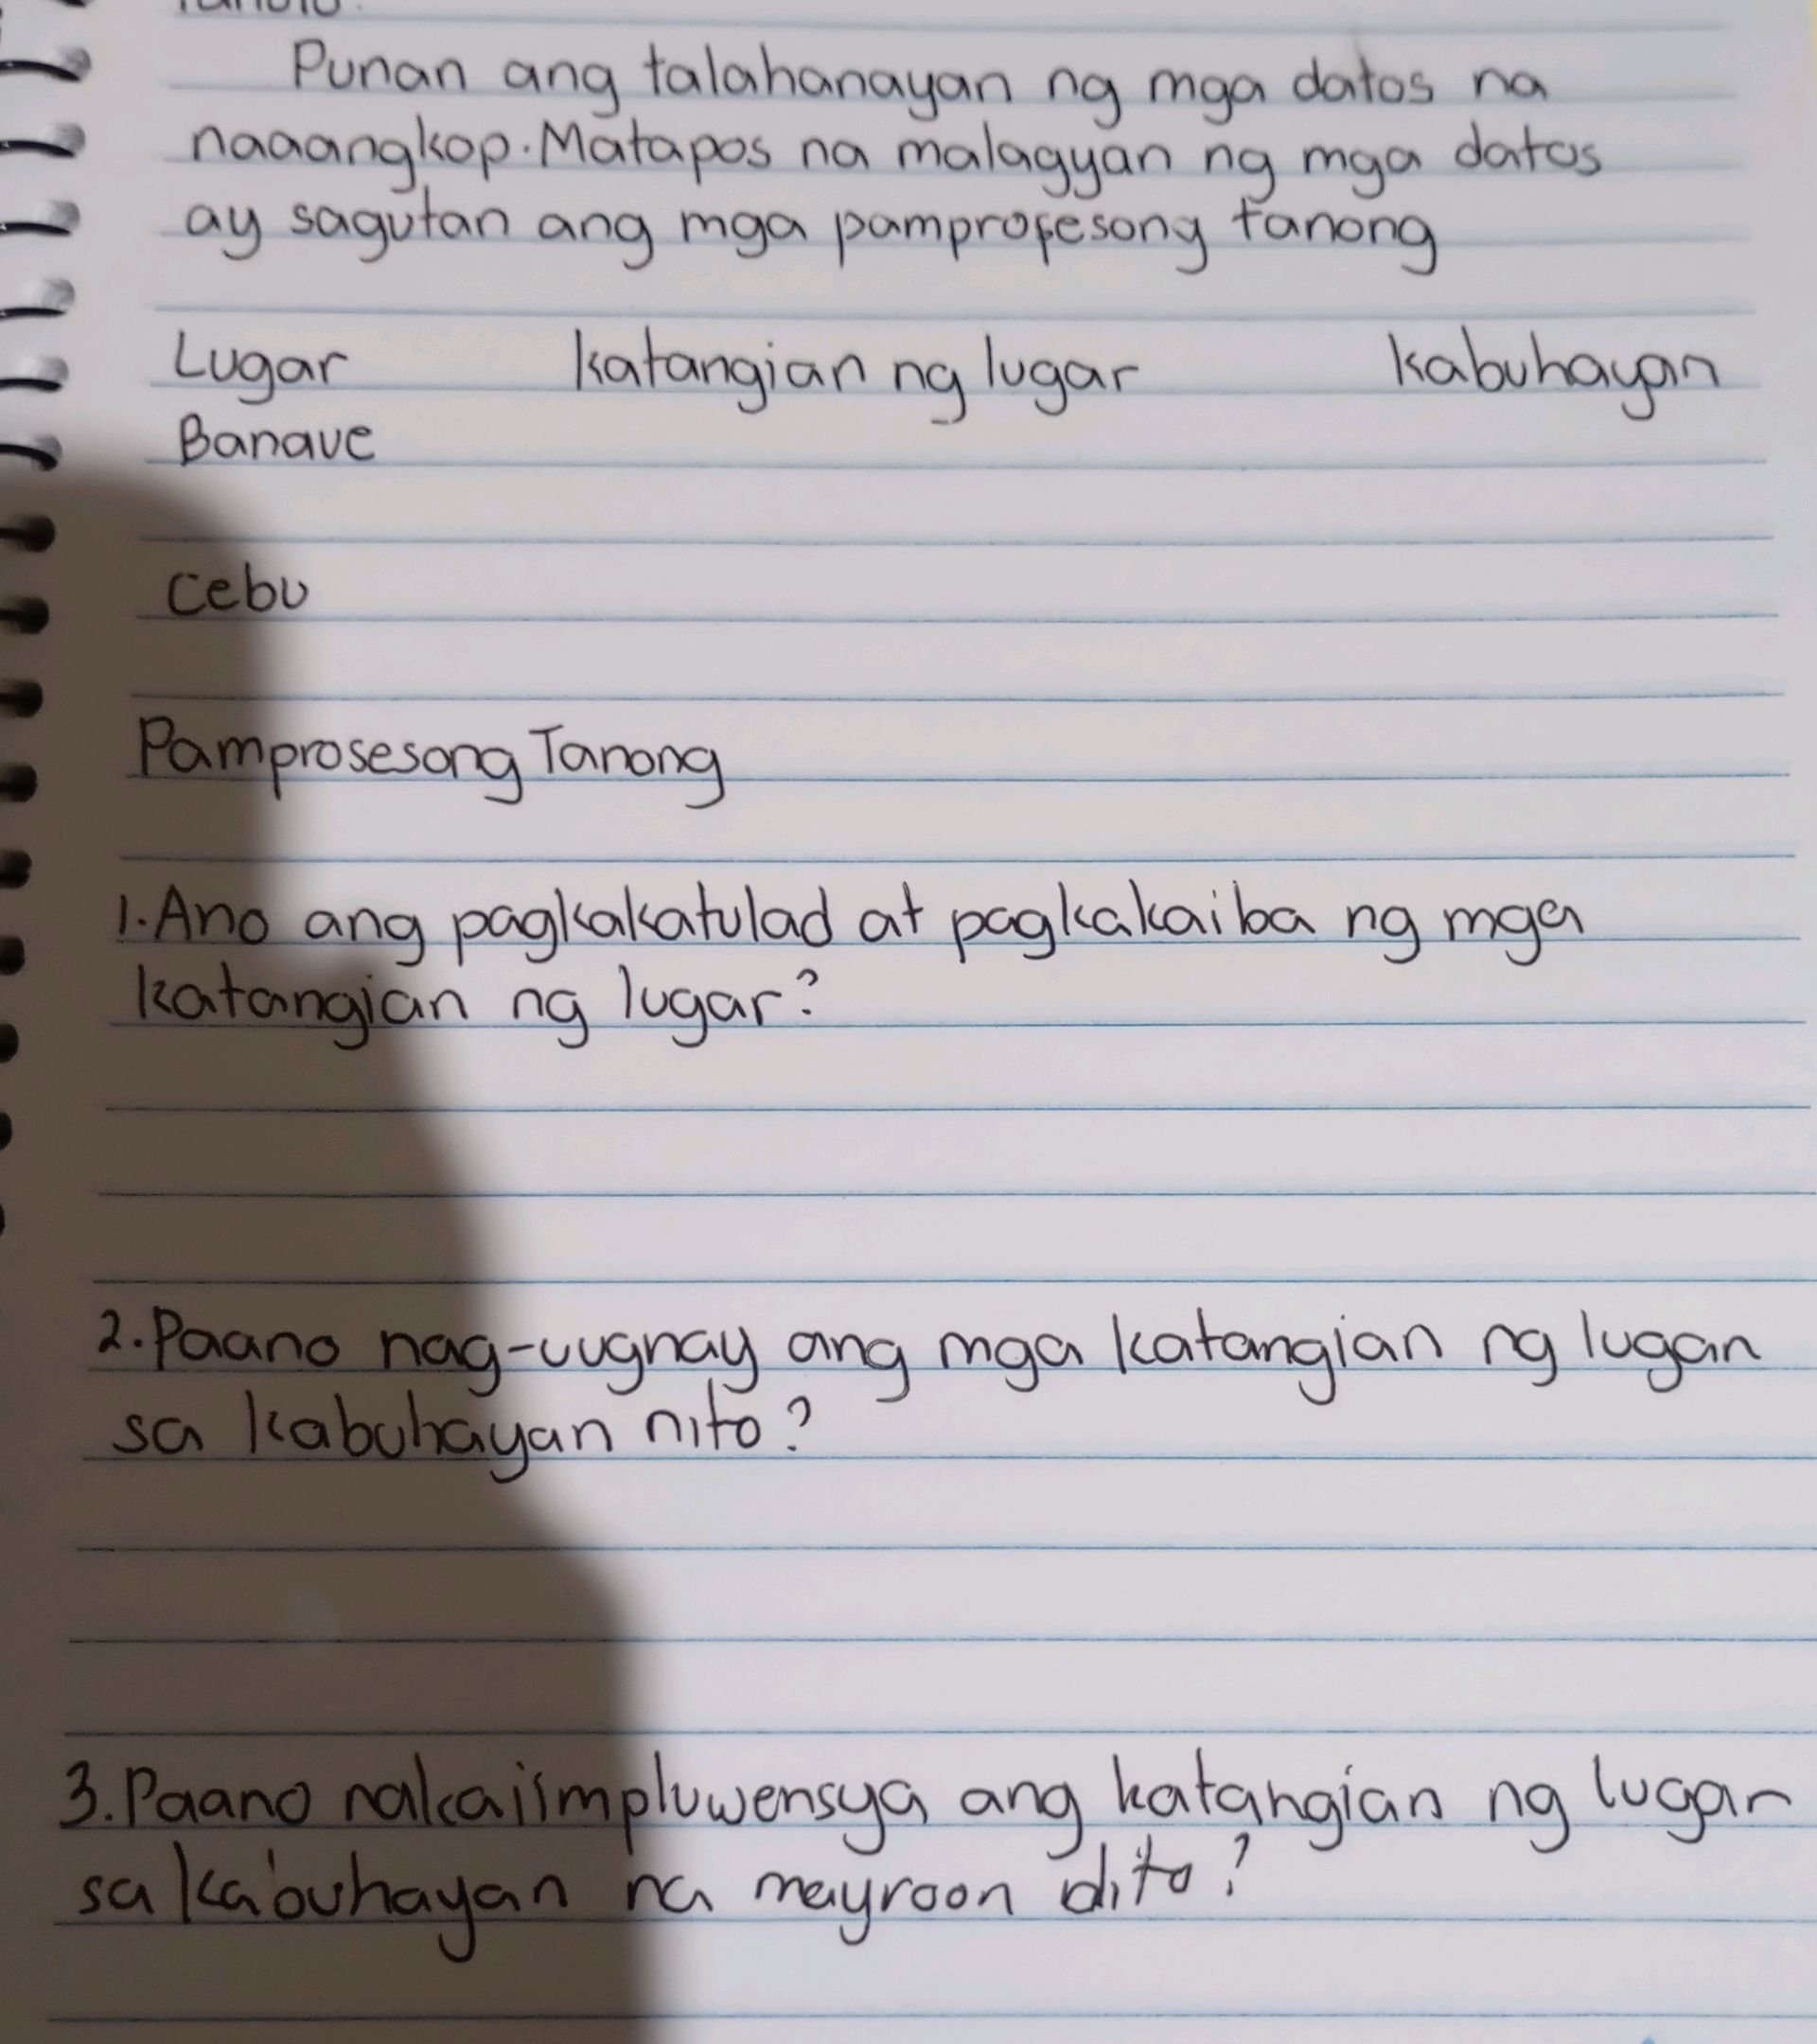 Punan ang talahanayan ng mga datos na
naaangkop. Matapos na malagyan ng mga datos
ay sagutan ang mga pamprosesong tanong
Lugar katangian ng lugar kabuhayan
Banaue
cebu
Pamprosesong Tanong
1. Ano ang pagkakatulad at pagkakaiba ng mga
katangian ng lugar?
2. Paano nag-uugnay ang mga katangian ng lugan
sa kabuhayan nito?
3. Paano nakaiimpluwensya ang katangian ng lugar
sa kabuhayan na mayroon dito?